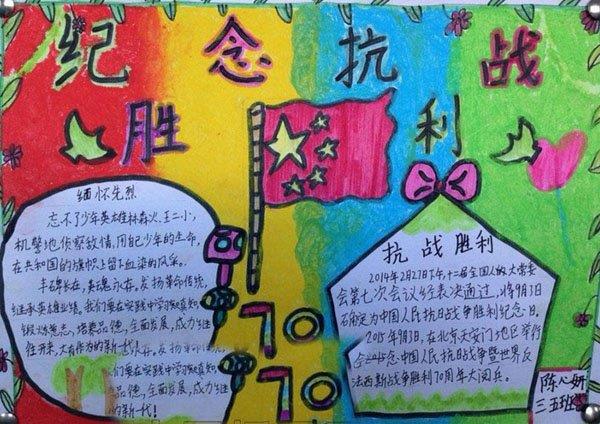 纪念抗战
胜利
缅怀先烈
忘不了少年英雄林森火、王二小,
机警地侦察敌情,用自己少年的生命,
在共和国的旗帜上留下血染的风采。
丰碑长在,英魂永存,发扬革命传统,
继承英雄业绩。我们要在实践中学习知识,
锻炼意志,培养品德,全面发展,成为继
往开来,大有作为的新一代!
永存,发扬革命传统,
们要在实践中学习知识
品德,全面发展,成为继
的新一代!
70
70
抗战胜利
2014年2月27日下午,十二届全国人大常委
会第七次会议经表决通过,将9月3
日确定为中国人民抗日战争胜利纪念日。
2015年9月3日,在北京天安门地区举行
念中国人民抗日战争暨世界反
法西斯战争胜利70周年大阅兵。
陈心妍
三五班